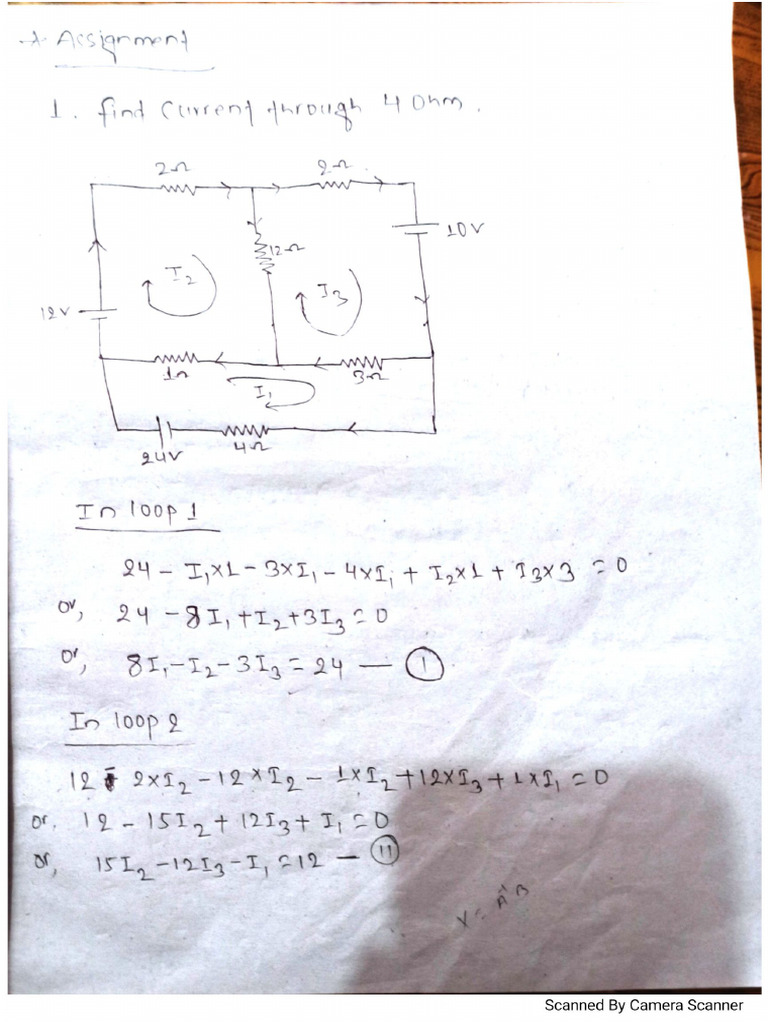 * Assignment
1. find current through 4 Ohm.
2Ω 2Ω
10V
12Ω
I2
I3
12V
1Ω 3Ω
I1
24V 4Ω
In loop 1
24 - I1×1 - 3×I1 - 4×I1 + I2×1 + I3×3 = 0
or, 24 - 8I1 + I2 + 3I3 = 0
or, 8I1 - I2 - 3I3 = 24 — (I)
In loop 2
12 - 2×I2 - 12×I2 - 1×I2 + 12×I3 + 1×I1 = 0
or, 12 - 15I2 + 12I3 + I1 = 0
or, 15I2 - 12I3 - I1 = 12 — (II)
Scanned By Camera Scanner